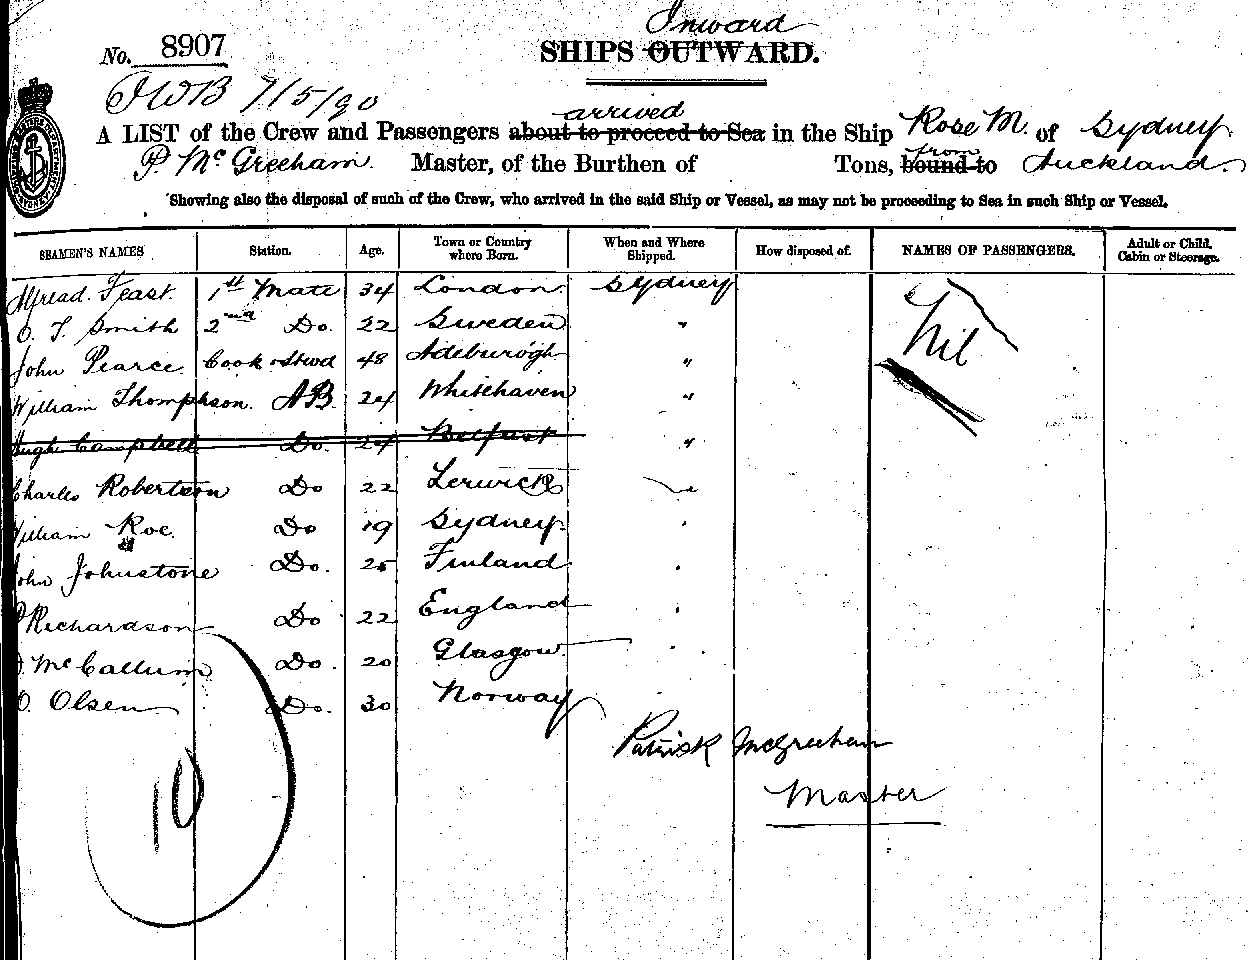 Inward
No. 8907
SHIPS OUTWARD.
JWB 7/5/90
arrived
A LIST of the Crew and Passengers about to proceed to Sea in the Ship Rose M. of Sydney
from
P. McGreeham Master, of the Burthen of Tons, bound to Auckland.
Showing also the disposal of such of the Crew, who arrived in the said Ship or Vessel, as may not be proceeding to Sea in such Ship or Vessel.
SEAMEN'S NAMES Station. Age. Town or Country where Born. When and Where Shipped. How disposed of. NAMES OF PASSENGERS. Adult or Child, Cabin or Steerage.
Alfread. Feast. 1st Mate 34 London Sydney Nil
O. T. Smith 2nd Do. 22 Sweden "
John Pearce Cook & Stwd 48 Adeburogh "
William Thomphson. AB. 24 Whitehaven "
Hugh Campbell Do. 24 Belfast "
Charles Robertson Do 22 Lerwick "
William Roe. Do 19 Sydney "
John Johnstone Do. 25 Finland "
P Richardson Do 22 England "
McCallum Do. 20 Glasgow "
O. Olsen Do. 30 Norway
Patrisk McGreeham
Master
10